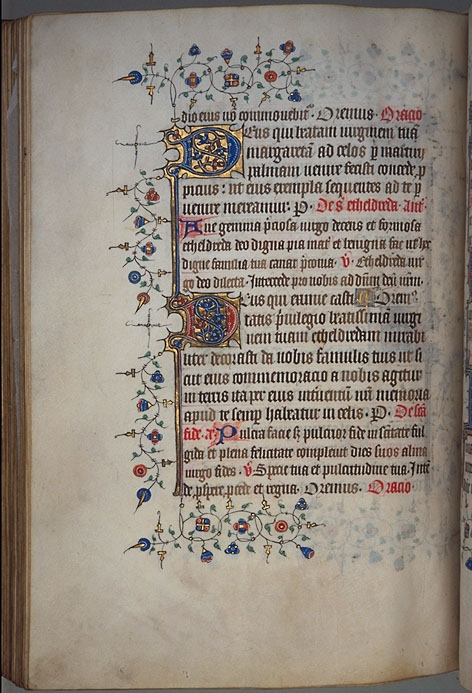 dio eius nō commouebit͛. Oremus. Oracio
Deus qui beatam uirginem tuā
margaretā ad celos ꝑ martirii
palmam uenire fecisti concede ꝓ
picius : ut eius exempla sequentes ad te ꝑ
uenire mereamur. P. De sͨa etheldreda. antͨ.
Aue gemma p̄ciosa uirgo decens et formosa
etheldreda deo digna pia mat̄ et benigna fac
digne familia tua canat p̄conia. v̄. Etheldreda uir
go deo dilecta. Intercede pro nobis ad dn̄m deū nr̄m.
Deus qui eximie casti Orem͛
tatis p̄uilegio beatissimā uirgi
nem tuam etheldredam mirabi
liter decorasti da nobis famulis tuis ut si
cut eius commemoracio a nobis agitur
in terris ita per eius intuentū nr̄i memoria
apud te semꝑ habeatur in celis. P. De sc̄a
fide. a͛. Pulcra facie sꝫ pulcrior fide in sc̄itate ful
gida et plena felicitate compleuit dies suos alma
uirgo fides. v̄. Specie tua et pulcritudine tua. Inte͛
de ꝓspere ꝓcede et regna. Oremus. Oracio.